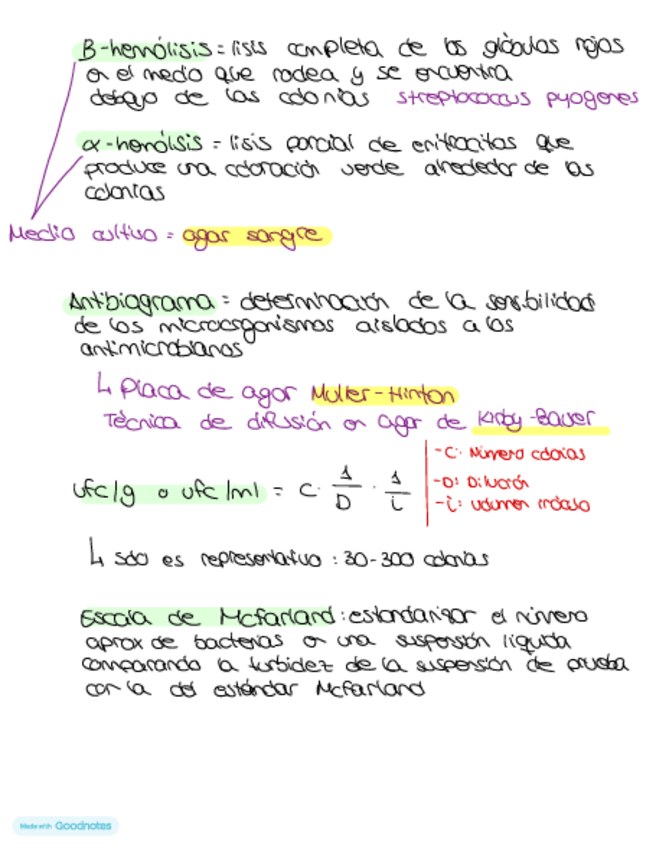 β-hemólisis = lisis completa de los glóbulos rojos
en el medio que rodea y se encuentra
debajo de las colonias streptococcus pyogenes
α-hemólisis = lisis parcial de eritrocitos que
produce una coloración verde alrededor de las
colonias
Medio cultivo = agar sangre
Antibiograma = determinación de la sensibilidad
de los microorganismos aislados a los
antimicrobianos
↳ Placa de agar Muller-Hinton
Técnica de difusión en agar de Kirby-Bauer
ufc/g o ufc/ml = C · 1/D · 1/i
-C: Número colonias
-D: Dilución
-i: volumen inóculo
↳ solo es representativo : 30-300 colonias
Escala de McFarland: estandarizar el número
aprox de bacterias en una suspensión líquida
comparando la turbidez de la suspensión de prueba
con la del estándar McFarland
Made with Goodnotes